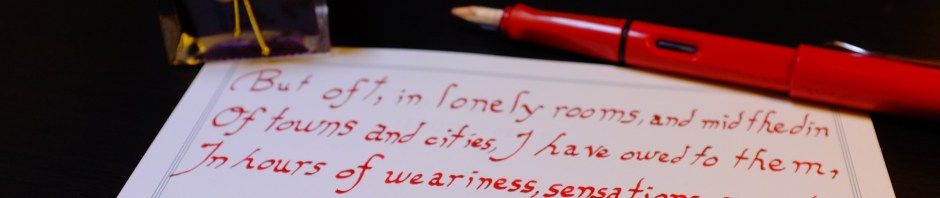 But oft, in lonely rooms, and mid the din
Of towns and cities, I have owed to them,
In hours of weariness, sensations